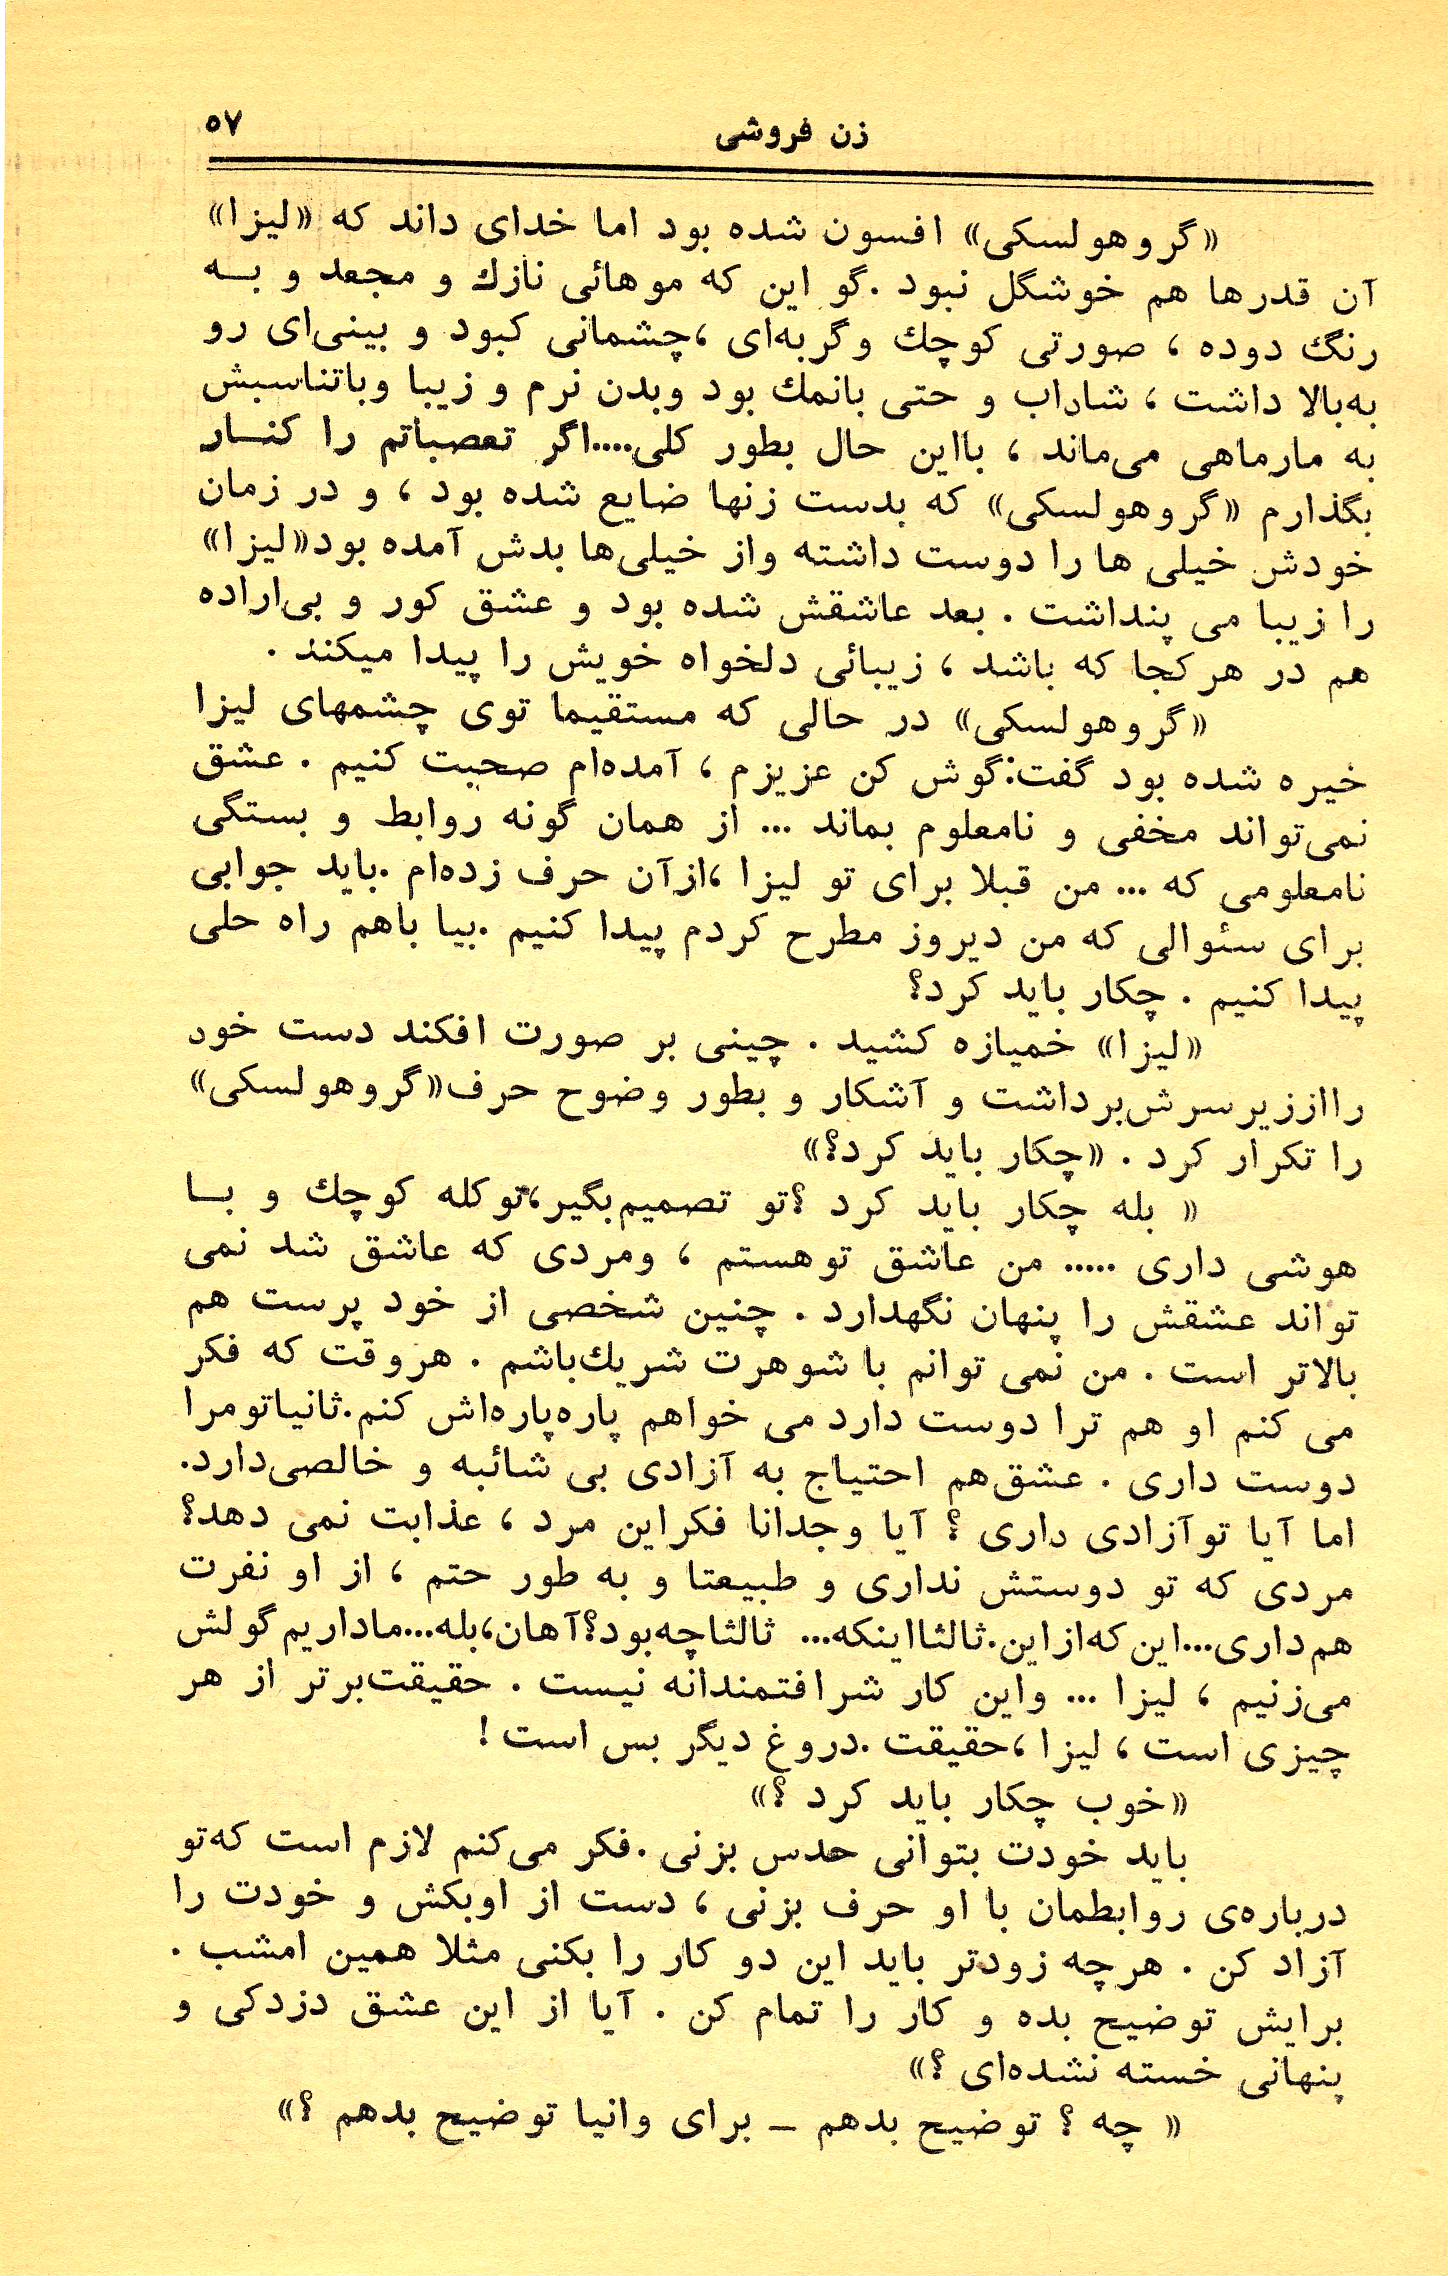 زن فروشی ۵۷
«گروهولسکی» افسون شده بود اما خدای داند که «لیزا»
آن قدرها هم خوشگل نبود .گو این که موهائی نازك و مجعد و بــه
رنگ دوده ، صورتی کوچك وگربه‌ای ،چشمانی کبود و بینی‌ای رو
به‌بالا داشت ، شاداب و حتی بانمك بود وبدن نرم و زیبا وباتناسبش
به مارماهی می‌ماند ، بااین حال بطور کلی....اگر تعصباتم را کنــار
بگذارم «گروهولسکی» که بدست زنها ضایع شده بود ، و در زمان
خودش خیلی ها را دوست داشته واز خیلی‌ها بدش آمده بود«لیزا»
را زیبا می پنداشت . بعد عاشقش شده بود و عشق کور و بی‌اراده
هم در هرکجا که باشد ، زیبائی دلخواه خویش را پیدا میکند .
«گروهولسکی» در حالی که مستقیما توی چشمهای لیزا
خیره شده بود گفت:گوش کن عزیزم ، آمده‌ام صحبت کنیم . عشق
نمی‌تواند مخفی و نامعلوم بماند ... از همان گونه روابط و بستگی
نامعلومی که ... من قبلا برای تو لیزا ،ازآن حرف زده‌ام .باید جوابی
برای سئوالی که من دیروز مطرح کردم پیدا کنیم .بیا باهم راه حلی
پیدا کنیم . چکار باید کرد؟
«لیزا» خمیازه کشید . چینی بر صورت افکند دست خود
رااززیرسرش‌برداشت و آشکار و بطور وضوح حرف«گروهولسکی»
را تکرار کرد . «چکار باید کرد؟»
« بله چکار باید کرد ؟تو تصمیم‌بگیر،توکله کوچك و بــا
هوشی داری ..... من عاشق توهستم ، ومردی که عاشق شد نمی
تواند عشقش را پنهان نگهدارد . چنین شخصی از خود پرست هم
بالاتر است . من نمی توانم با شوهرت شریك‌باشم . هروقت که فکر
می کنم او هم ترا دوست دارد می خواهم پاره‌پاره‌اش کنم.ثانیاتومرا
دوست داری . عشق‌هم احتیاج به آزادی بی شائبه و خالصی‌دارد.
اما آیا توآزادی داری ؟ آیا وجدانا فکراین مرد ، عذابت نمی دهد؟
مردی که تو دوستش نداری و طبیعتا و به طور حتم ، از او نفرت
هم‌داری...این‌که‌ازاین.ثالثااینکه... ثالثاچه‌بود؟آهان،بله...ماداریم‌گولش
می‌زنیم ، لیزا ... واین کار شرافتمندانه نیست . حقیقت‌برتر از هر
چیزی است ، لیزا ،حقیقت .دروغ دیگر بس است !
«خوب چکار باید کرد ؟»
باید خودت بتوانی حدس بزنی .فکر می‌کنم لازم است که‌تو
درباره‌ی روابطمان با او حرف بزنی ، دست از اوبکش و خودت را
آزاد کن . هرچه زودتر باید این دو کار را بکنی مثلا همین امشب .
برایش توضیح بده و کار را تمام کن . آیا از این عشق دزدکی و
پنهانی خسته نشده‌ای ؟»
« چه ؟ توضیح بدهم ــ برای وانیا توضیح بدهم ؟»